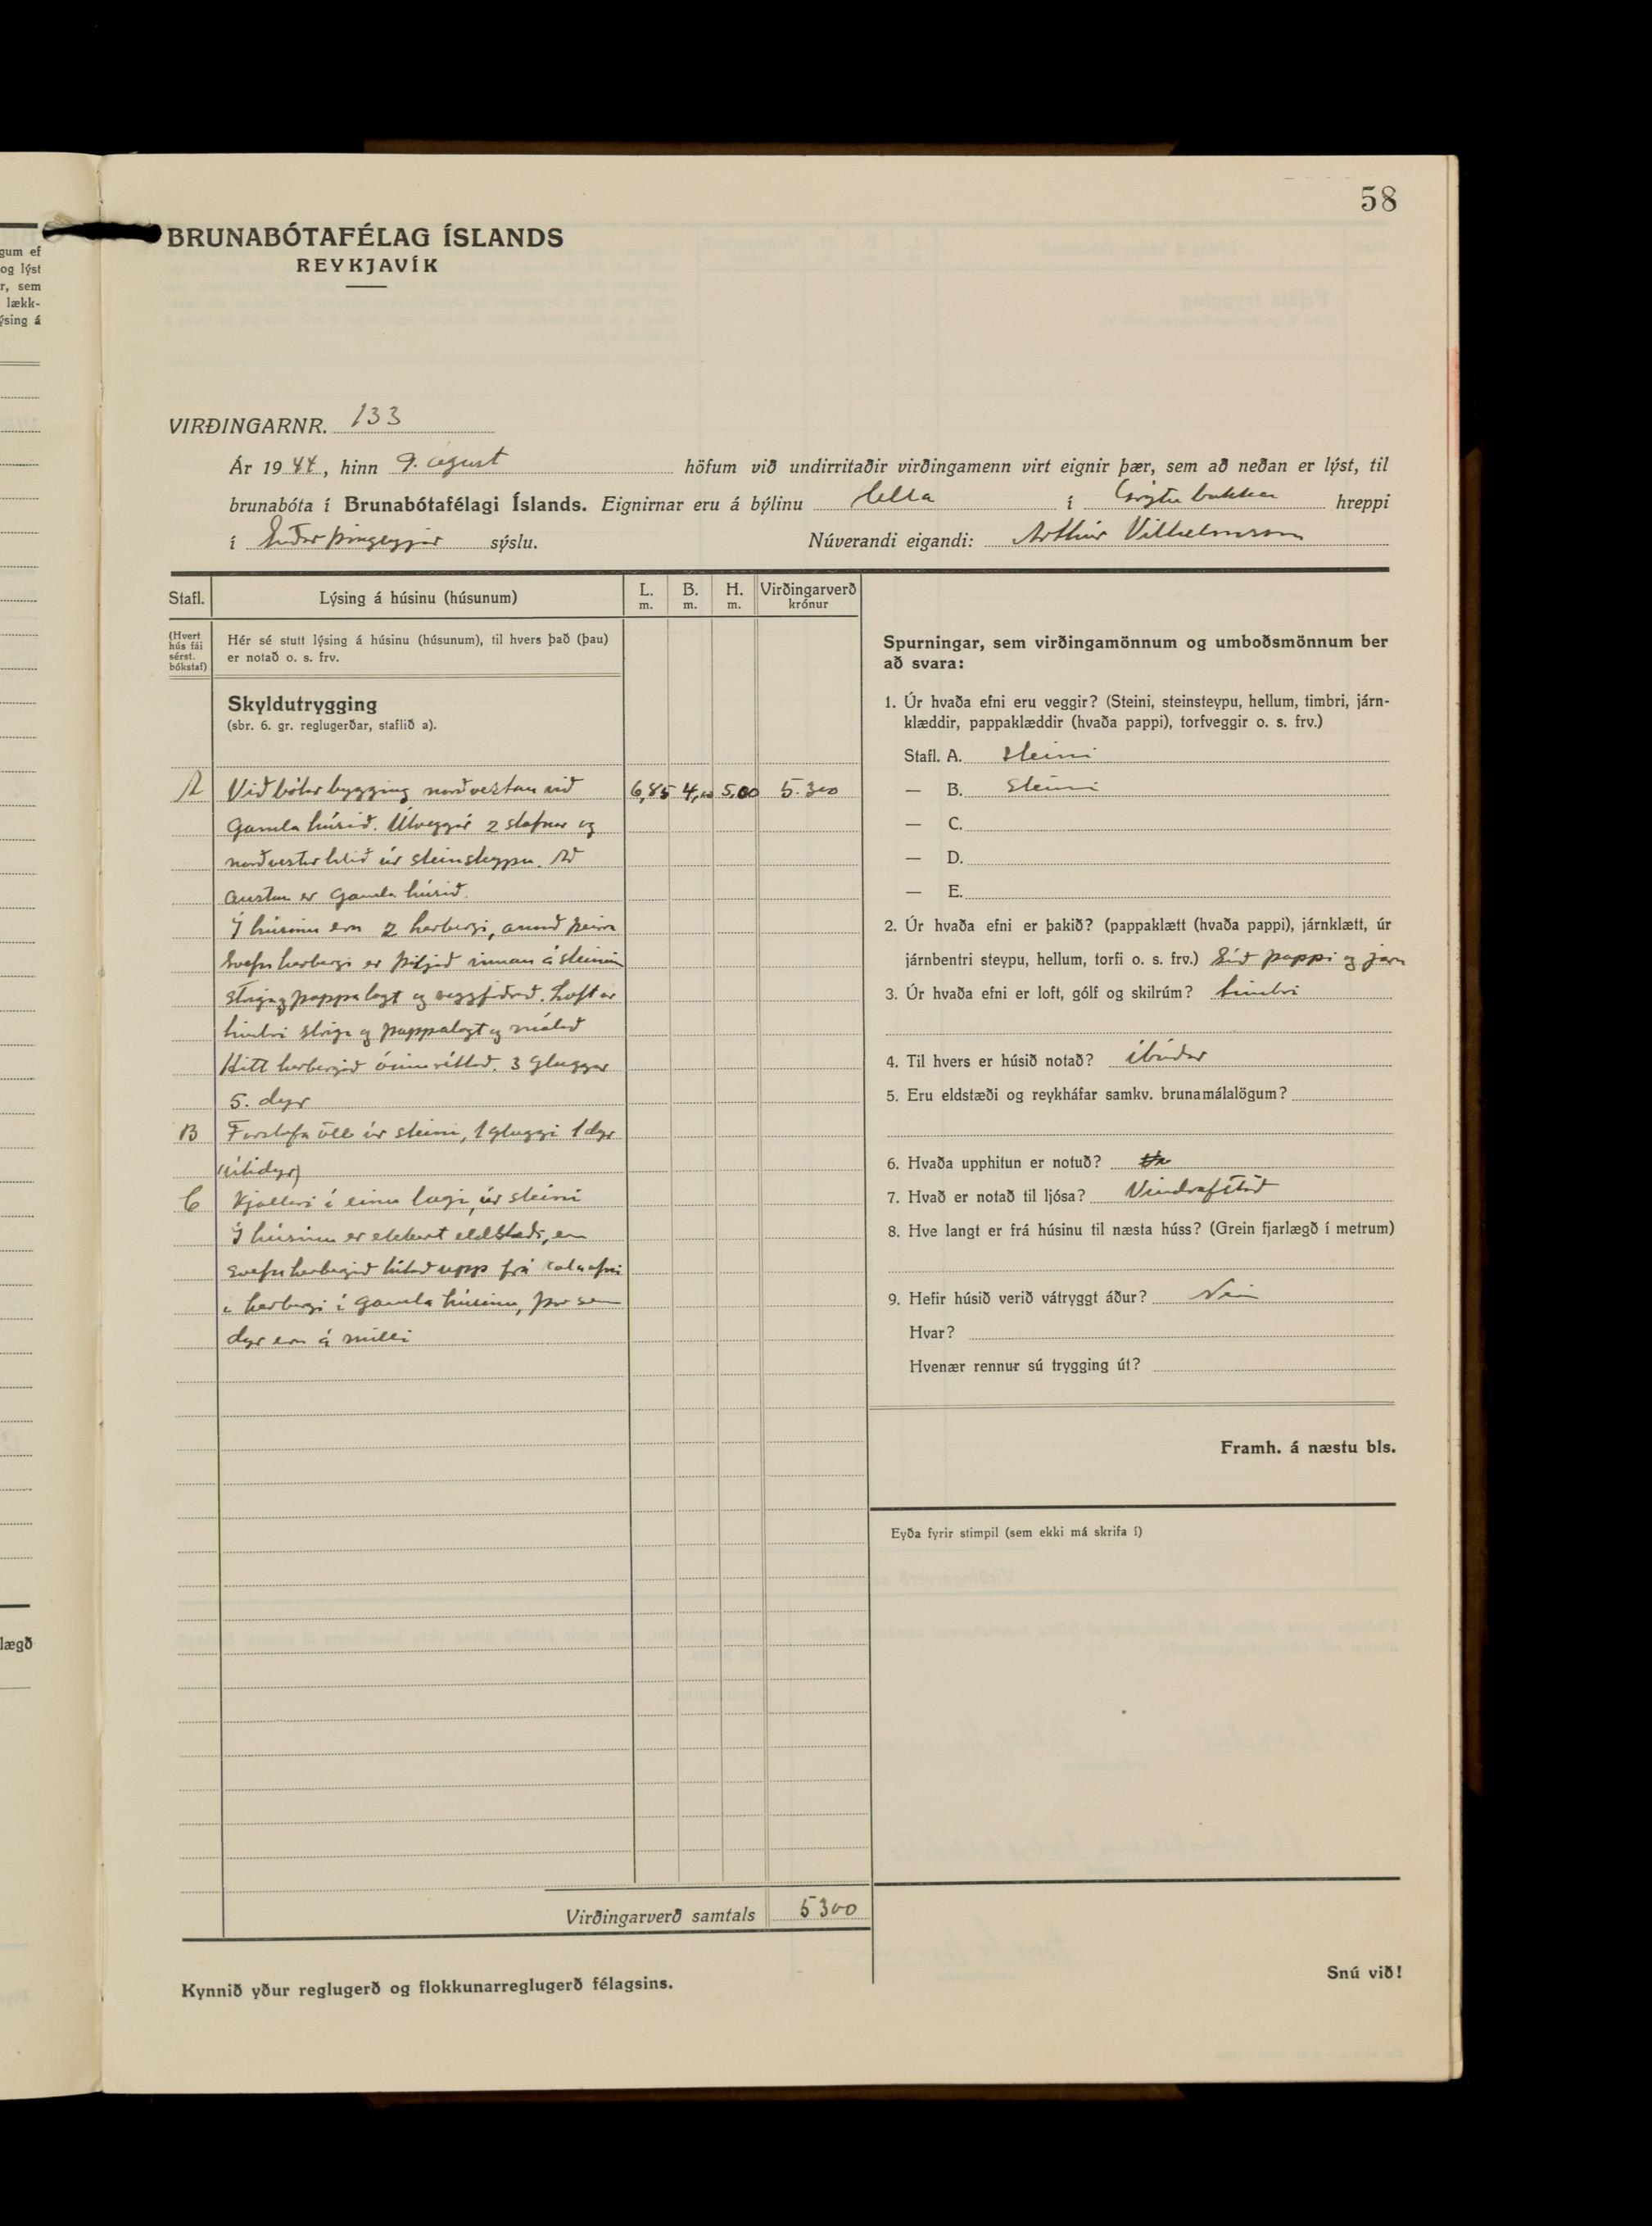 58
BRUNABÓTAFÉLAG ÍSLANDS
REYKJAVÍK
VIRÐINGARNR. 133
Ár 1944, hinn 9. ágúst höfum við undirritaðir virðingamenn virt eignir þær, sem að neðan er lýst, til
brunabóta í Brunabótafélagi Íslands. Eignirnar eru á býlinu í hreppi
í Suður þingeyjar sýslu. Núverandi eigandi: Arthúr Vilhelmsson
Stafl. Lýsing á húsinu (húsunum) L. m. B. m. H. m. Virðingarverð krónur
(Hvert hús fái sérst. bókstaf)
Hér sé stutt lýsing á húsinu (húsunum), til hvers það (þau)
er notað o. s. frv.
Skyldutrygging
(sbr. 6. gr. reglugerðar, staflið a).
A Viðbótar bygging norðvestan við 6,85 4,00 5,00 5.300
Gamla húsið. Útveggir 2 stafnar og
norðvestur hlið úr steinsteypu. Að
austan er gamla húsið.
Í húsinu eru 2 herbergi, annað þeirra
Svefnherbergi er þiljað innan á steininn
striga og pappalagt og veggfóðrað. Loft úr
timbri striga og pappalagt og málað
Hitt herbergið óinnréttað. 3 gluggar
5. dyr
B Forstofa öll úr steini, 1 gluggi 1 dyr
(útidyr)
C Kjallari í einu lagi, úr steini
Í húsinu er ekkert eldstæði, en
Svefnherbergið hitað upp frá kolaofni
í herbergi í gamla húsinu, þar sem
dyr eru á milli
Virðingarverð samtals 5300
Kynnið yður reglugerð og flokkunarreglugerð félagsins.
Spurningar, sem virðingamönnum og umboðsmönnum ber
að svara:
1. Úr hvaða efni eru veggir? (Steini, steinsteypu, hellum, timbri, járn-
klæddir, pappaklæddir (hvaða pappi), torfveggir o. s. frv.)
Stafl. A. Steini
— B. Steini
— C.
— D.
— E.
2. Úr hvaða efni er þakið? (pappaklætt (hvaða pappi), járnklætt, úr
járnbentri steypu, hellum, torfi o. s. frv.) pappi og járn
3. Úr hvaða efni er loft, gólf og skilrúm? timbri
4. Til hvers er húsið notað? íbúðar
5. Eru eldstæði og reykháfar samkv. brunamálalögum?
6. Hvaða upphitun er notuð?
7. Hvað er notað til ljósa? Vindrafstöð
8. Hve langt er frá húsinu til næsta húss? (Grein fjarlægð í metrum)
9. Hefir húsið verið vátryggt áður? Nei
Hvar?
Hvenær rennur sú trygging út?
Framh. á næstu bls.
Eyða fyrir stimpil (sem ekki má skrifa í)
Snú við!
gum ef
og lýst
r, sem
lækk-
ýsing á
lægð